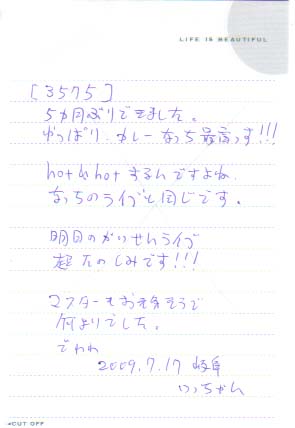 LIFE IS BEAUTIFUL
[3575]
5カ月ぶりできました。
やっぱり、カレーなっち最高っす!!!
hot&hotするんですよね
なっちのライブと同じです。
明日のがいせんライブ
超たのしみです!!!
マスターもお元気そうで
何よりでした。
でわわ
2009.7.17 岐阜
いっちゃん
CUT OFF